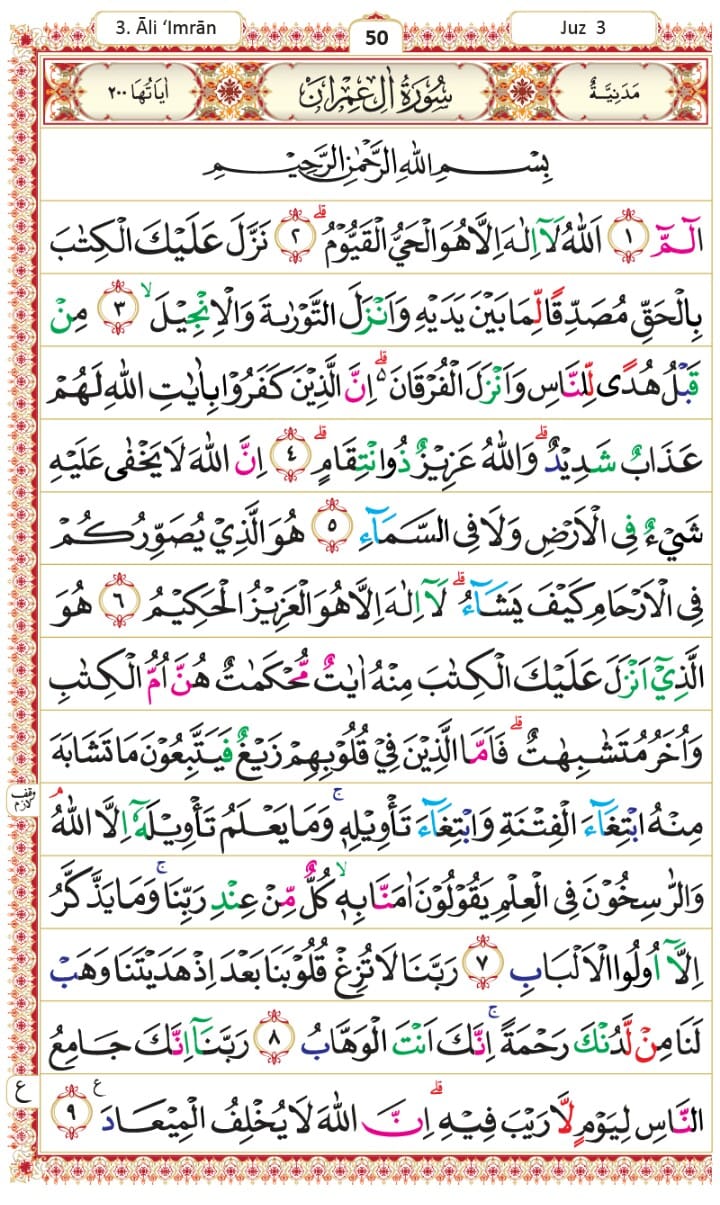 3. Āli ‘Imrān
50
Juz 3
مَدَنِيَّةٌ سُوْرَةُ اٰلِ عِمْرَان اٰيَاتُهَا ٢٠٠
بِسْمِ اللّٰهِ الرَّحْمٰنِ الرَّحِيْمِ
الٓمّٓ ١ اَللّٰهُ لَاۤ اِلٰهَ اِلَّا هُوَ الْحَيُّ الْقَيُّوْمُ ۗ ٢ نَزَّلَ عَلَيْكَ الْكِتٰبَ
بِالْحَقِّ مُصَدِّقًا لِّمَا بَيْنَ يَدَيْهِ وَاَنْزَلَ التَّوْرٰىةَ وَالْاِنْجِيْلَ ۙ ٣ مِنْ
قَبْلُ هُدًى لِّلنَّاسِ وَاَنْزَلَ الْفُرْقَانَ ۗ ٥ اِنَّ الَّذِيْنَ كَفَرُوْا بِاٰيٰتِ اللّٰهِ لَهُمْ
عَذَابٌ شَدِيْدٌ ۗ وَاللّٰهُ عَزِيْزٌ ذُو انْتِقَامٍ ۗ ٤ اِنَّ اللّٰهَ لَا يَخْفٰى عَلَيْهِ
شَيْءٌ فِى الْاَرْضِ وَلَا فِى السَّمَاۤءِ ٥ هُوَ الَّذِيْ يُصَوِّرُكُمْ
فِى الْاَرْحَامِ كَيْفَ يَشَاۤءُ ۗ لَاۤ اِلٰهَ اِلَّا هُوَ الْعَزِيْزُ الْحَكِيْمُ ٦ هُوَ
الَّذِيْۤ اَنْزَلَ عَلَيْكَ الْكِتٰبَ مِنْهُ اٰيٰتٌ مُّحْكَمٰتٌ هُنَّ اُمُّ الْكِتٰبِ
وَاُخَرُ مُتَشٰبِهٰتٌ ۗ فَاَمَّا الَّذِيْنَ فِيْ قُلُوْبِهِمْ زَيْغٌ فَيَتَّبِعُوْنَ مَا تَشَابَهَ
وقف لازم
مِنْهُ ابْتِغَاۤءَ الْفِتْنَةِ وَابْتِغَاۤءَ تَأْوِيْلِهٖ ۚ وَمَا يَعْلَمُ تَأْوِيْلَهٗۤ اِلَّا اللّٰهُ ۘ
وَالرّٰسِخُوْنَ فِى الْعِلْمِ يَقُوْلُوْنَ اٰمَنَّا بِهٖ ۙ كُلٌّ مِّنْ عِنْدِ رَبِّنَا ۚ وَمَا يَذَّكَّرُ
اِلَّاۤ اُولُوا الْاَلْبَابِ ٧ رَبَّنَا لَا تُزِغْ قُلُوْبَنَا بَعْدَ اِذْ هَدَيْتَنَا وَهَبْ
لَنَا مِنْ لَّدُنْكَ رَحْمَةً ۚ اِنَّكَ اَنْتَ الْوَهَّابُ ٨ رَبَّنَاۤ اِنَّكَ جَامِعُ
النَّاسِ لِيَوْمٍ لَّا رَيْبَ فِيْهِ ۗ اِنَّ اللّٰهَ لَا يُخْلِفُ الْمِيْعَادَ ع ٩
ع